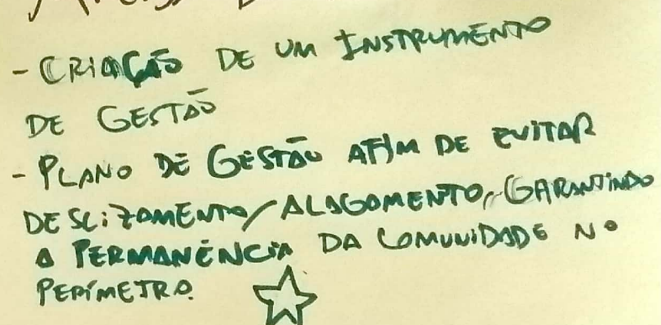 - CRIAÇÃO DE UM INSTRUMENTO
DE GESTÃO
- PLANO DE GESTÃO AFIM DE EVITAR
DESLIZAMENTO/ALAGAMENTO, GARANTINDO
A PERMANÊNCIA DA COMUNIDADE NO
PERÍMETRO.